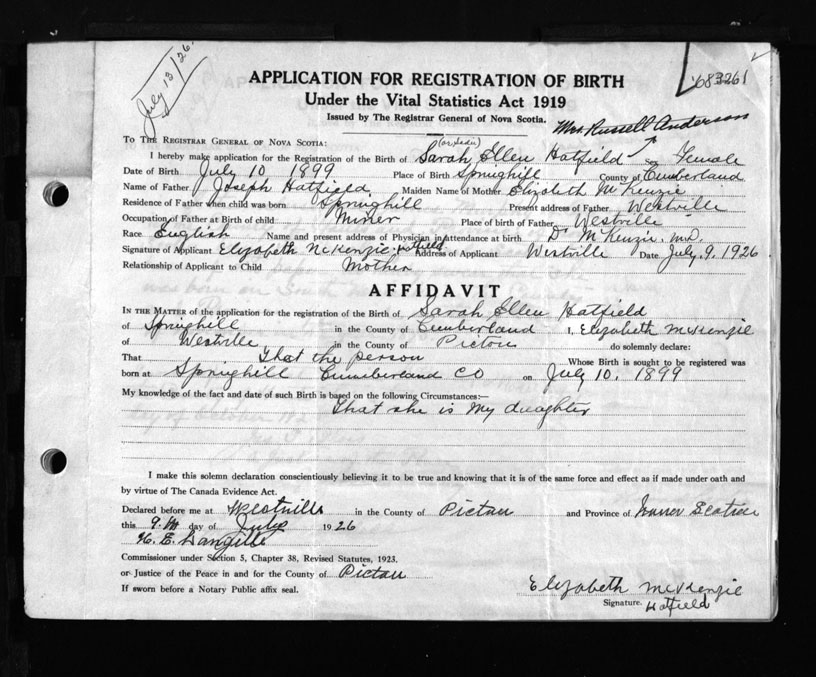 July 13/26.
68326 1
APPLICATION FOR REGISTRATION OF BIRTH
Under the Vital Statistics Act 1919
Issued by The Registrar General of Nova Scotia.
Mrs Russell Anderson
To The Registrar General of Nova Scotia:
I hereby make application for the Registration of the Birth of Sarah Ellen Hatfield Female
Date of Birth July 10 1899 Place of Birth Springhill County of Cumberland
Name of Father Joseph Hatfield Maiden Name of Mother Elizabeth McKenzie
Residence of Father when child was born Springhill Present address of Father Westville
Occupation of Father at Birth of child Miner Place of birth of Father Westville
Race English Name and present address of Physician in attendance at birth Dr McKenzie M.D.
Signature of Applicant Elizabeth McKenzie Hatfield Address of Applicant Westville Date July. 9. 1926
Relationship of Applicant to Child Mother
AFFIDAVIT
In the Matter of the application for the registration of the Birth of Sarah Ellen Hatfield
of Springhill in the County of Cumberland I, Elizabeth McKenzie
of Westville in the County of Pictou do solemnly declare:
That That the person Whose Birth is sought to be registered was
born at Springhill Cumberland Co on July 10. 1899
My knowledge of the fact and date of such Birth is based on the following Circumstances:—
That she is my daughter
I make this solemn declaration conscientiously believing it to be true and knowing that it is of the same force and effect as if made under oath and
by virtue of The Canada Evidence Act.
Declared before me at Westville in the County of Pictou and Province of Nova Scotia
this 9th day of July 1926
H. E. Langille
Commissioner under Section 5, Chapter 38, Revised Statutes, 1923.
or Justice of the Peace in and for the County of Pictou
If sworn before a Notary Public affix seal.
Elizabeth McKenzie
Signature. Hatfield